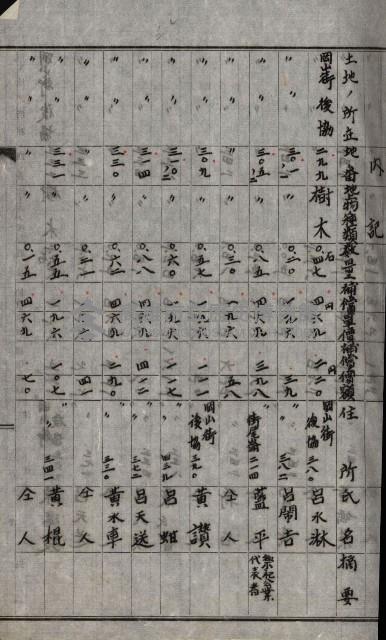 內記
土地ノ所在 地番 地上物種類 數量 補償單價 補償價額 住所 氏名 摘要
岡山街後協 二九九 樹木 〇.四七石 四六九円 二二〇円 岡山街後協三八〇 呂水淋
〃 〃 三〇一 〃 〇.二〇 一九六 三九 〃 三八二 呂閙吉
〃 〃 三〇五ノ二 〃 〇.八五 四六九 三九八 街尾崙二一四 藍平 祭祀公業代表者
〃 〃 〃 〃 〇.三〇 一九六 五八 〃 仝人
〃 〃 三〇九 〃 〇.五七 一九六 一一二 岡山街後協三九〇 黃讚
〃 〃 三一〇ノ二 〃 〇.六〇 一九六 一一七 〃 四三九 呂蚶
〃 〃 三一四 〃 〇.八八 四六九 四一二 〃 三七二 呂天送
〃 〃 三三〇 〃 〇.六二 四六九 二九〇 〃 三三〇 黃水車
〃 〃 〃 〃 〇.二一 一九六 四一 〃 仝人
〃 〃 三三一 〃 〇.五五 一九六 一〇七 〃 三四一 黃棍
〃 〃 〃 〃 〇.一五 四六九 七〇 仝人